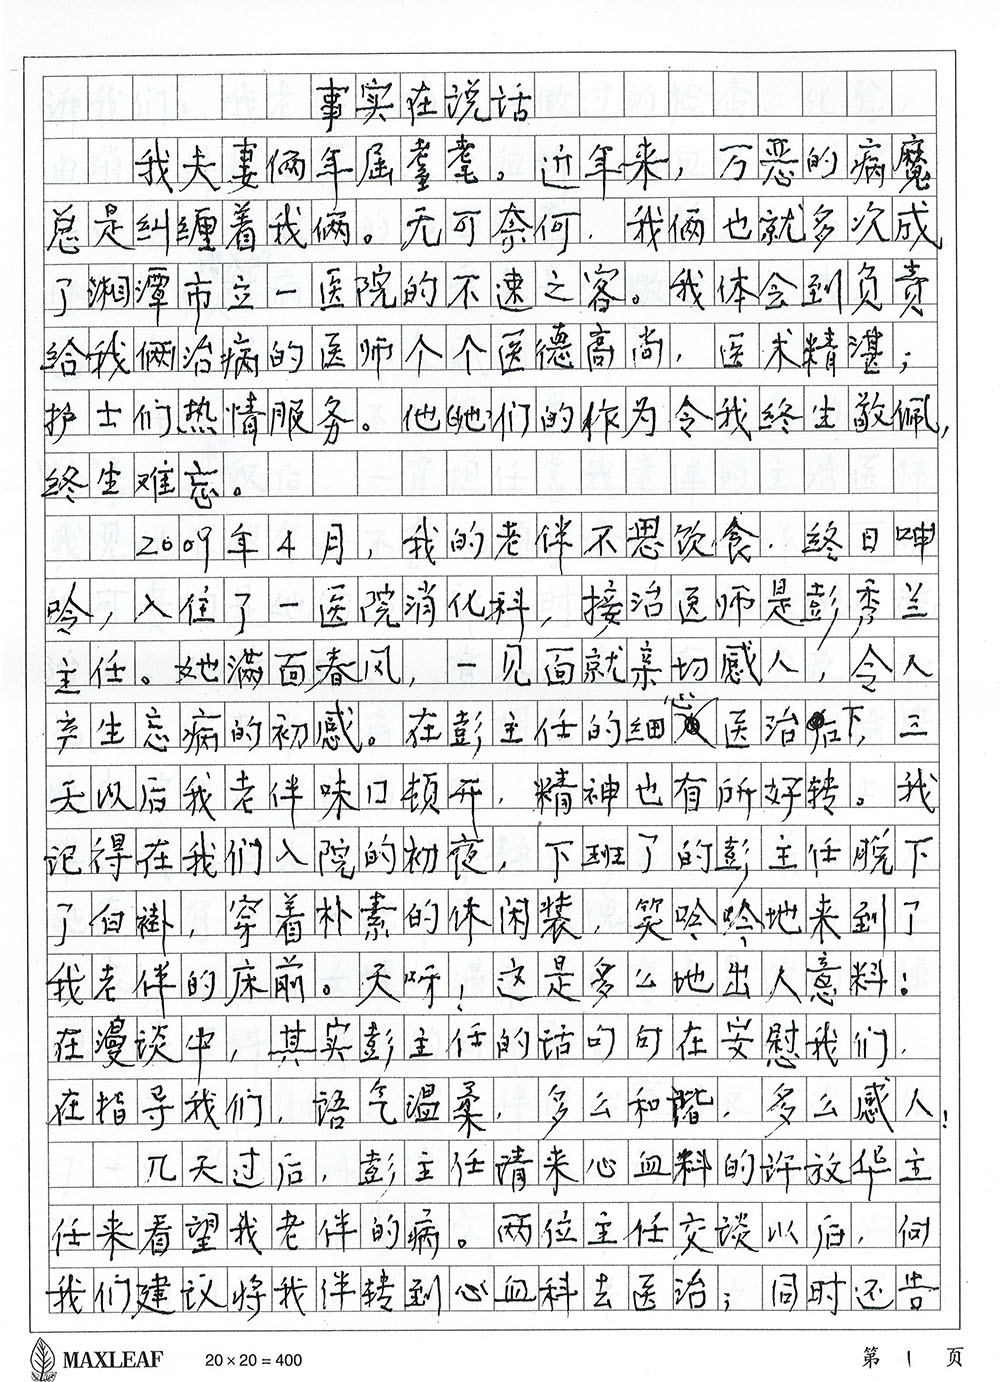 事实在说话
我夫妻俩年届耄耋。近年来，万恶的病魔
总是纠缠着我俩。无可奈何，我俩也就多次成
了湘潭市立一医院的不速之客。我体会到负责
给我俩治病的医师个个医德高尚，医术精湛；
护士们热情服务。他(她)们的作为令我终生敬佩，
终生难忘。
2009年4月，我的老伴不思饮食，终日呻
吟，入住了一医院消化科，接治医师是彭秀兰
主任。她满面春风，一见面就亲切感人，令人
产生忘病的初感。在彭主任的细心医治下，三
天以后我老伴味口顿开，精神也有所好转。我
记得在我们入院的初夜，下班了的彭主任脱下
了白褂，穿着朴素的休闲装，笑呤呤地来到了
我老伴的床前。天呀！这是多么地出人意料！
在漫谈中，其实彭主任的话句句在安慰我们，
在指导我们，语气温柔，多么和谐，多么感人！
几天过后，彭主任请来心血料的许放华主
任来看望我老伴的病。两位主任交谈以后，向
我们建议将我伴转到心血科去医治；同时还告
MAXLEAF 20×20=400 第 1 页